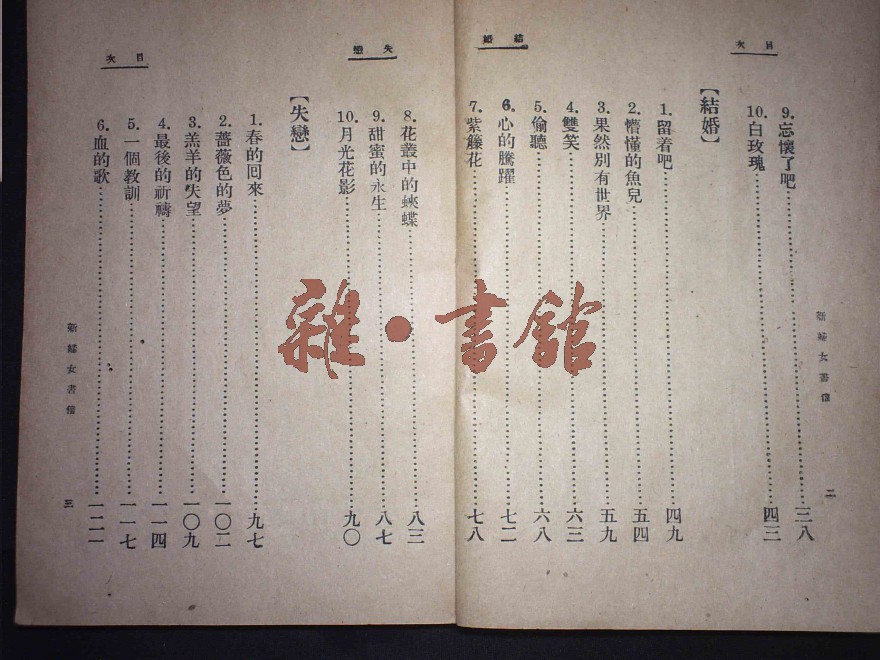 目次
9.忘懷了吧……三八
10.白玫瑰……四三
【結婚】
1.留着吧……四九
2.懵懂的魚兒……五四
3.果然別有世界……五九
4.雙笑……六三
5.偷聽……六八
6.心的騰躍……七二
7.紫籐花……七八
結婚
新婦女書信
二
失戀
8.花叢中的蛺蝶……八三
9.甜蜜的永生……八七
10.月光花影……九〇
【失戀】
1.春的回來……九七
2.薔薇色的夢……一〇二
3.羔羊的失望……一〇九
4.最後的祈禱……一一四
5.一個教訓……一一七
6.血的歌……一二一
目次
新婦女書信
三
雜·書館